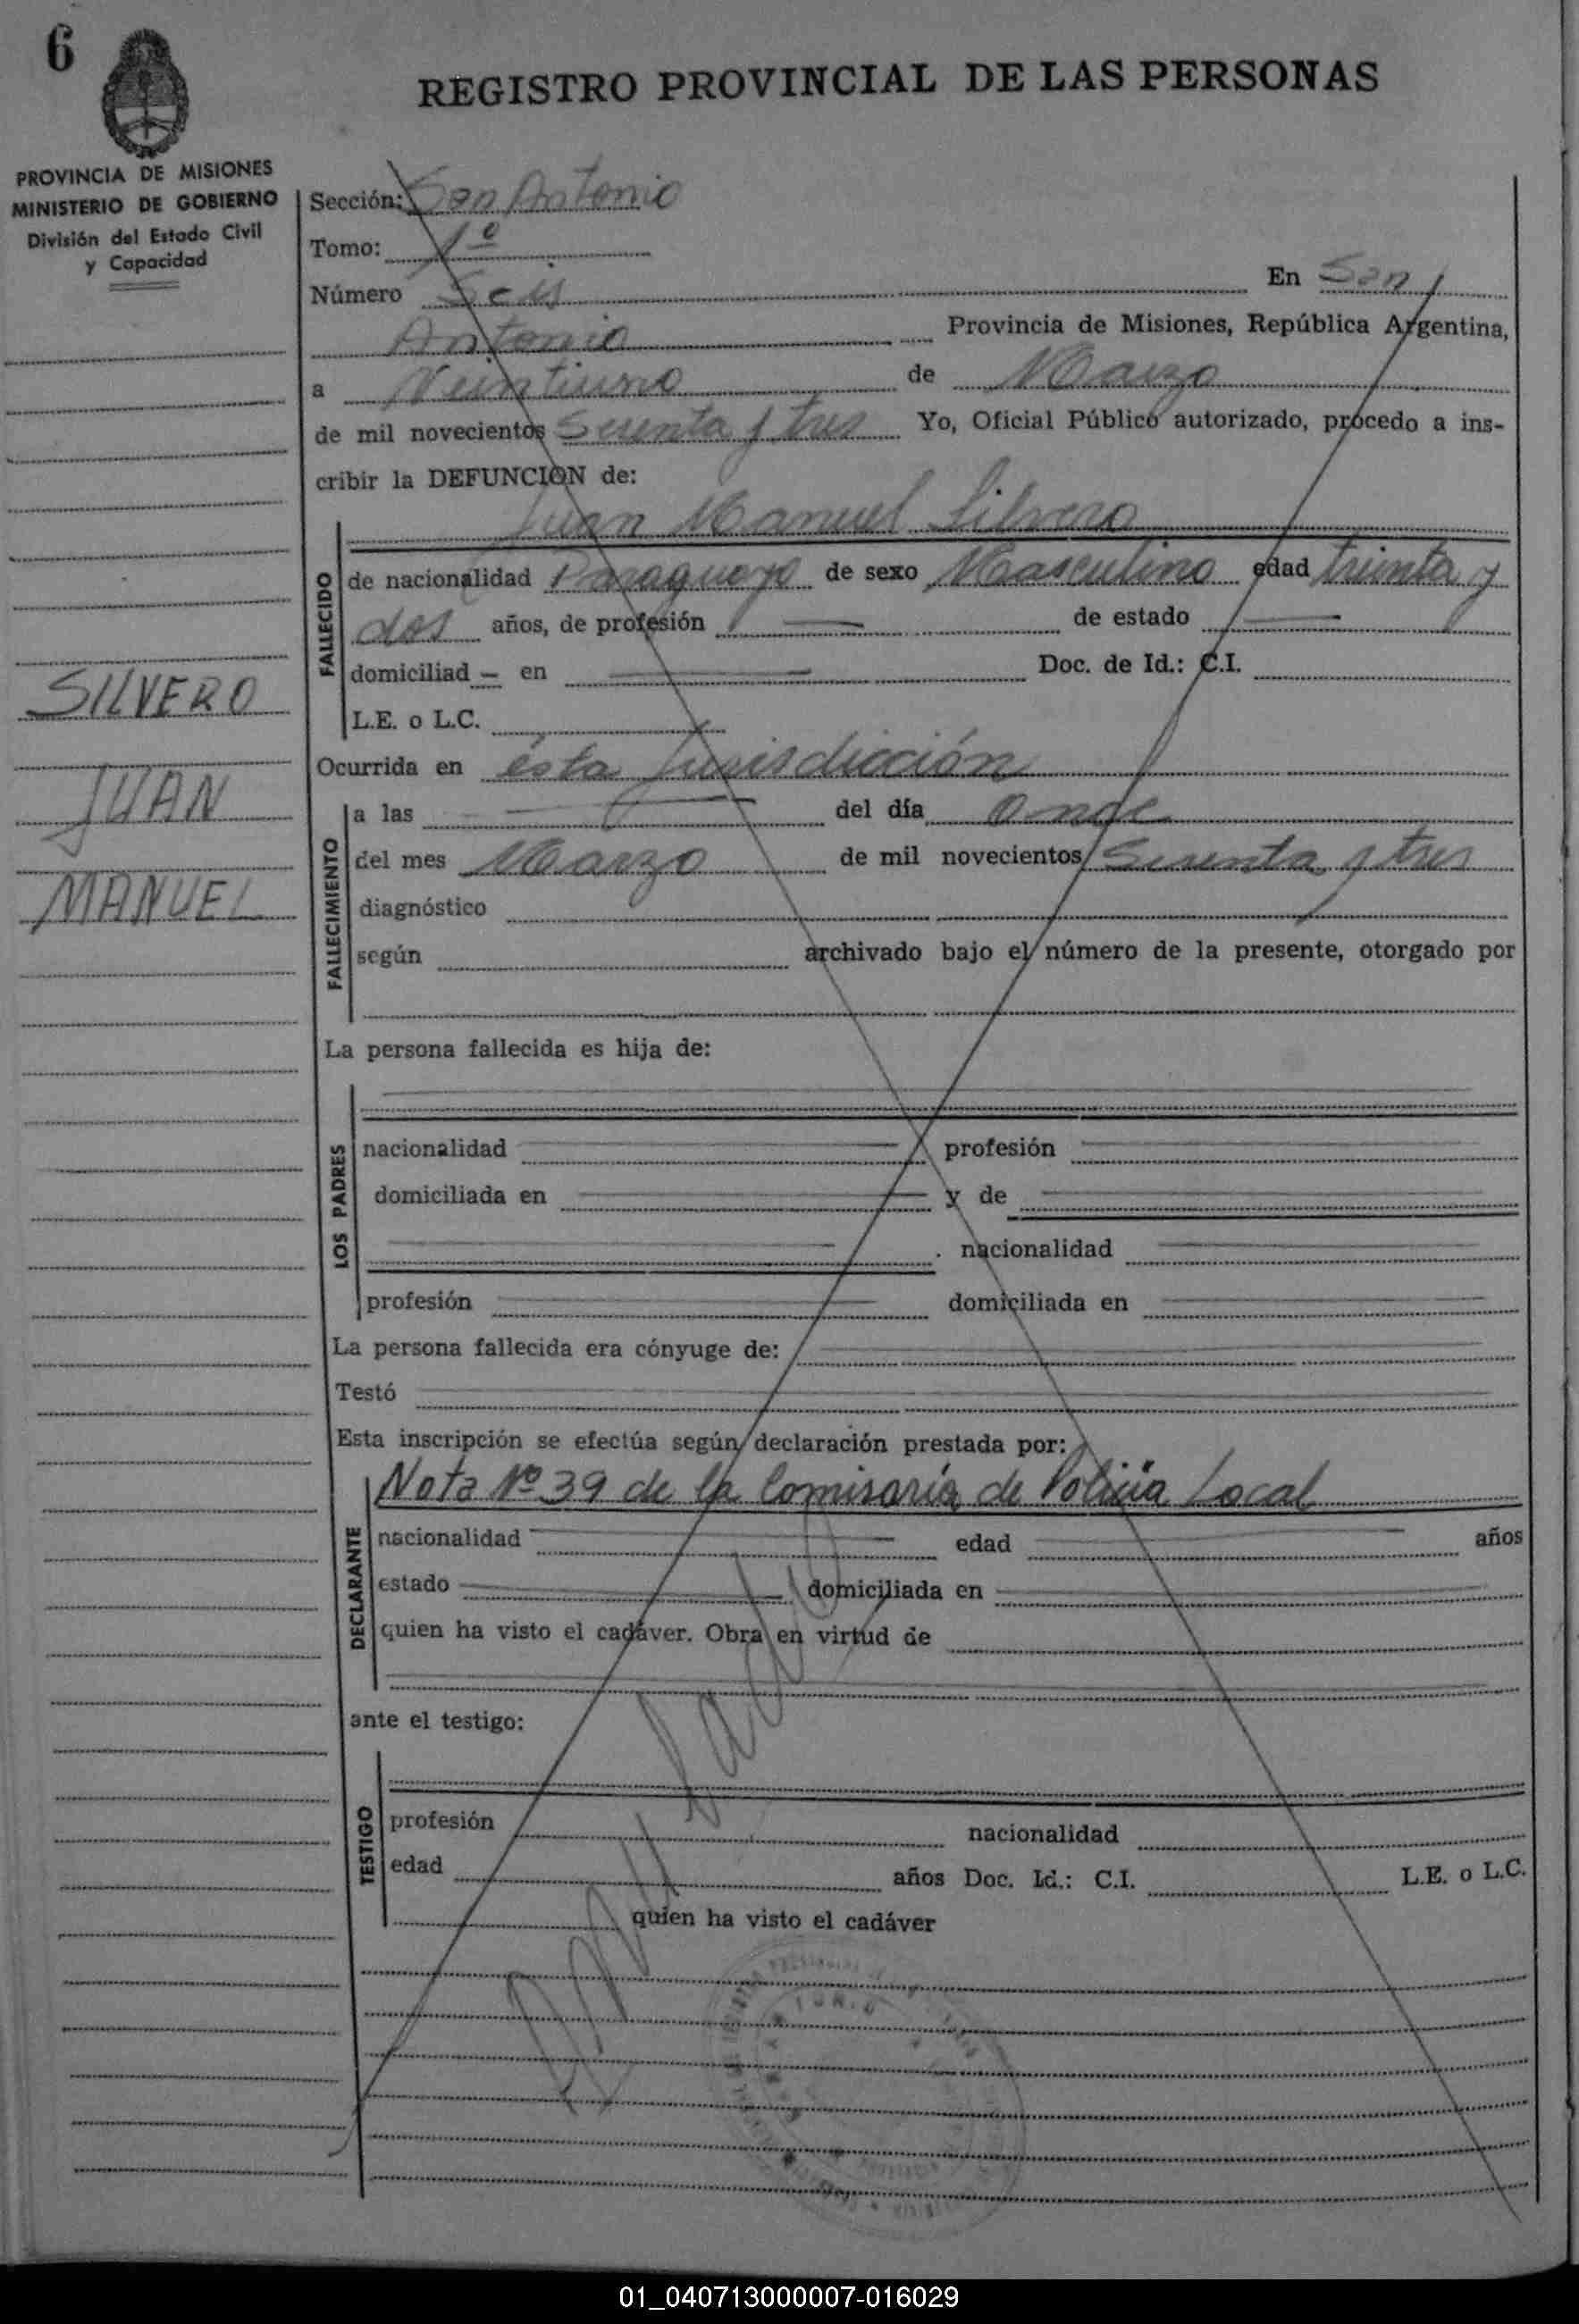 6
REGISTRO PROVINCIAL DE LAS PERSONAS
PROVINCIA DE MISIONES
MINISTERIO DE GOBIERNO
División del Estado Civil
y Capacidad
Sección: San Antonio
Tomo: 1º
Número Seis En San
Antonio Provincia de Misiones, República Argentina,
a Veintiuno de Marzo
de mil novecientos Sesenta y tres Yo, Oficial Público autorizado, procedo a ins-
cribir la DEFUNCION de:
Juan Manuel Silvero
FALLECIDO
de nacionalidad Paraguayo de sexo Masculino edad treinta y
dos años, de profesión — de estado —
domiciliad — en — Doc. de Id.: C.I.
L.E. o L.C.
SILVERO
JUAN
MANUEL
Ocurrida en ésta Jurisdicción
FALLECIMIENTO
a las — del día once
del mes Marzo de mil novecientos Sesenta y tres
diagnóstico
según archivado bajo el número de la presente, otorgado por
La persona fallecida es hija de:
LOS PADRES
nacionalidad — profesión —
domiciliada en — y de —
— . nacionalidad —
profesión — domiciliada en —
La persona fallecida era cónyuge de: —
Testó —
Esta inscripción se efectúa según declaración prestada por:
DECLARANTE
Nota Nº 39 de la Comisaría de Policía Local
nacionalidad — edad — años
estado — domiciliada en —
quien ha visto el cadáver. Obra en virtud de
ante el testigo:
TESTIGO
profesión nacionalidad
edad años Doc. Id.: C.I. L.E. o L.C.
quien ha visto el cadáver
Anulado
01_040713000007-016029